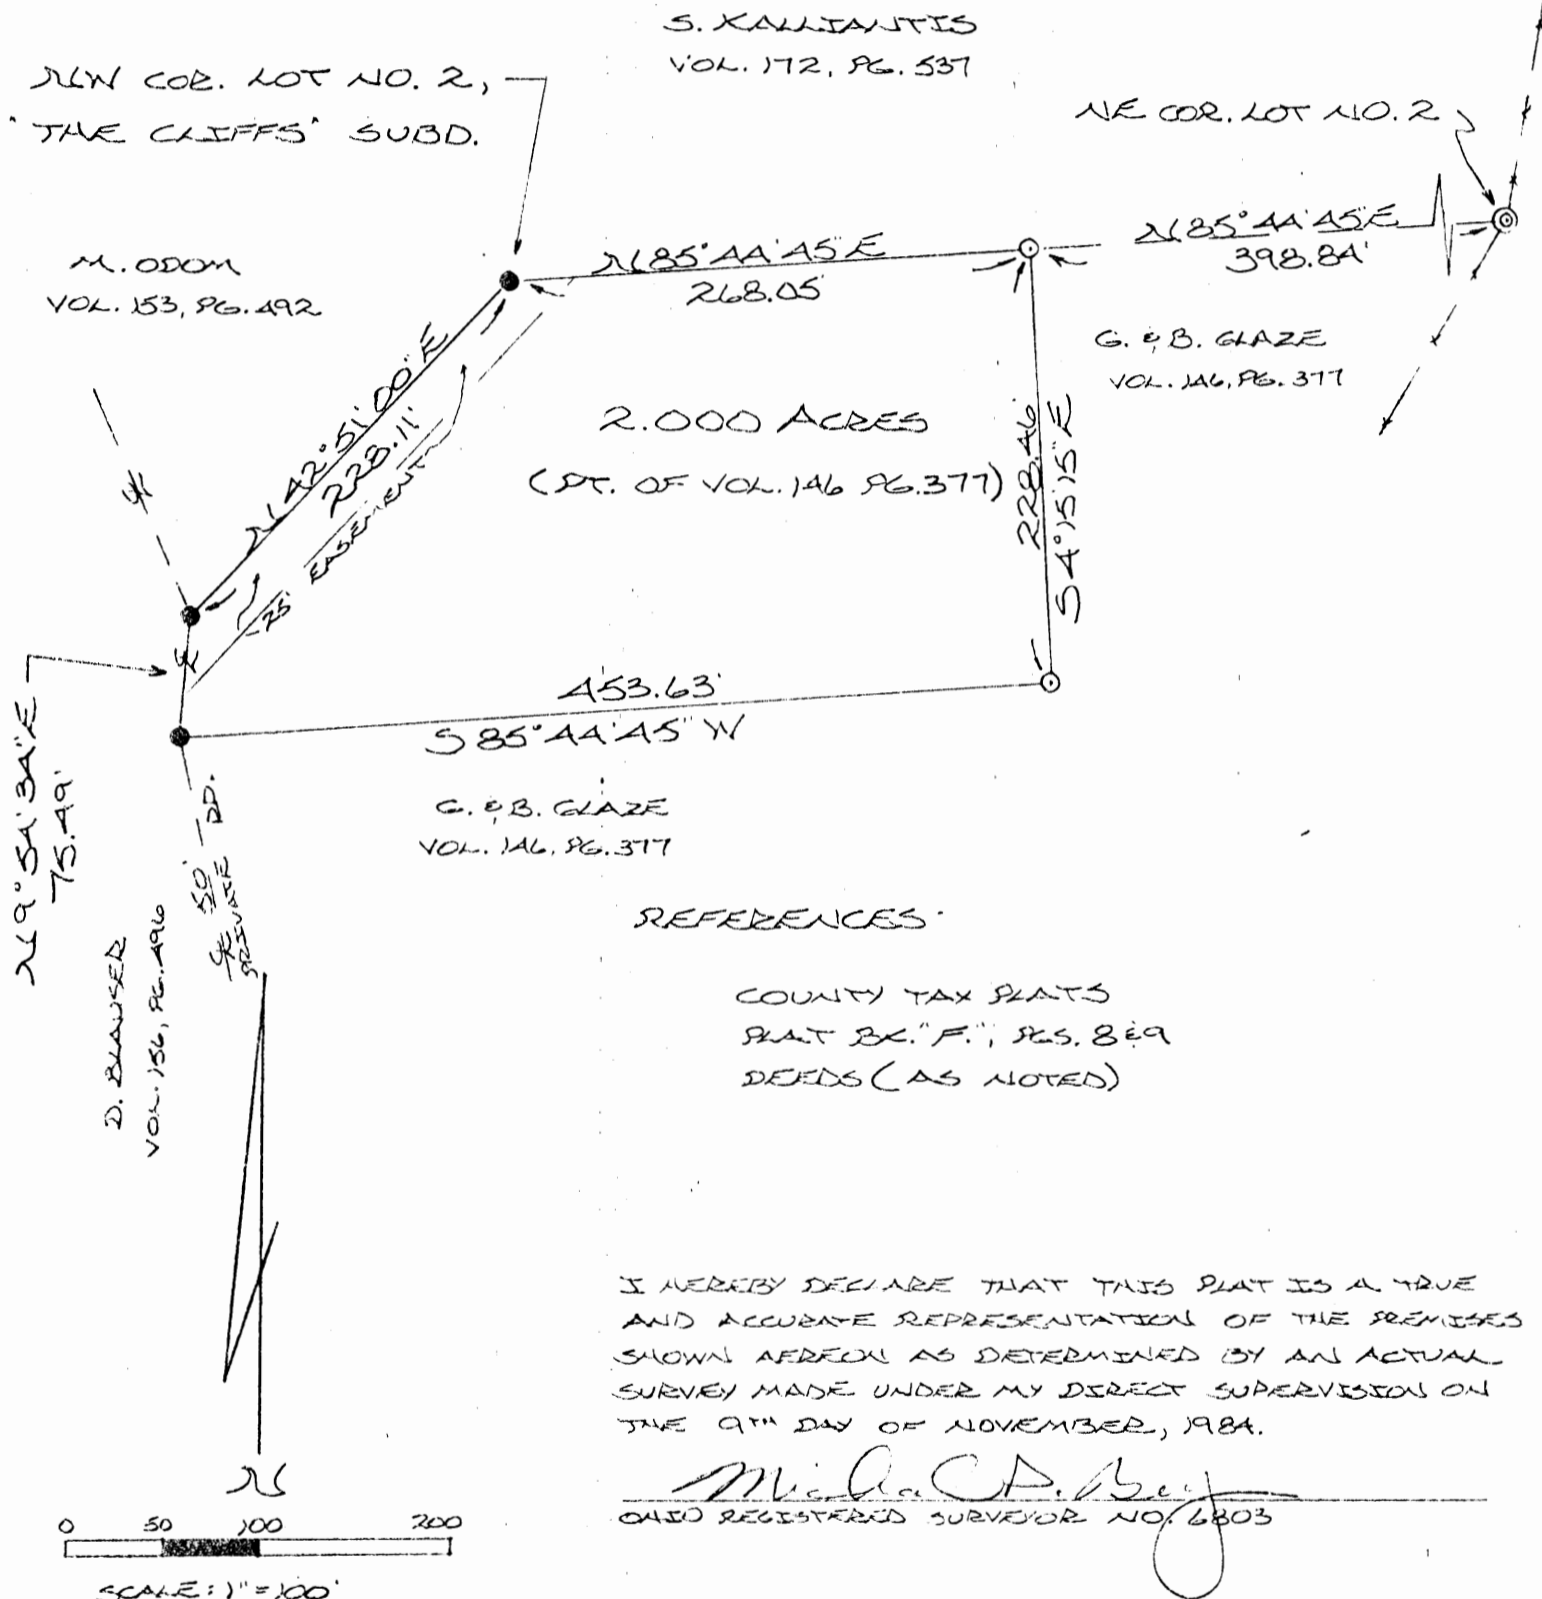 S. KALLIANTIS
VOL. 172, PG. 537
NW COR. LOT NO. 2,
"THE CLIFFS" SUBD.
NE COR. LOT NO. 2
M. ODOM
VOL. 153, PG. 492
N 85° 44' 45" E
268.05'
N 85° 44' 45" E
398.84'
G. & B. GLAZE
VOL. 146, PG. 377
N 42° 51' 00" E
228.11'
25' EASEMENT
2.000 ACRES
(PT. OF VOL. 146 PG. 377)
228.46'
S 4° 15' 15" E
453.63'
S 85° 44' 45" W
N 9° 54' 34" E
75.49'
G. & B. GLAZE
VOL. 146, PG. 377
℄ 50'
PRIVATE RD.
D. BLAUSER
VOL. 156, PG. 496
REFERENCES:
COUNTY TAX PLATS
PLAT BK. "F", PGS. 8 & 9
DEEDS (AS NOTED)
I HEREBY DECLARE THAT THIS PLAT IS A TRUE
AND ACCURATE REPRESENTATION OF THE PREMISES
SHOWN HEREON AS DETERMINED BY AN ACTUAL
SURVEY MADE UNDER MY DIRECT SUPERVISION ON
THE 9TH DAY OF NOVEMBER, 1984.
OHIO REGISTERED SURVEYOR NO. 6803
N
0 50 100 200
SCALE: 1" = 100'